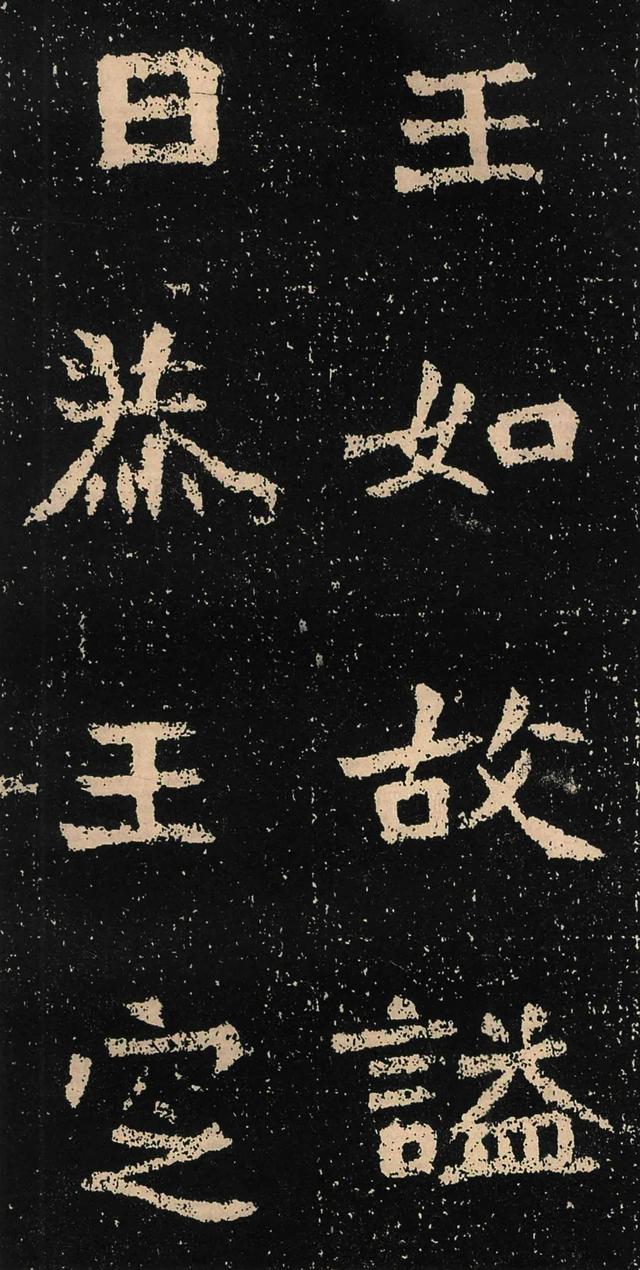 王如故謚
曰恭王窆